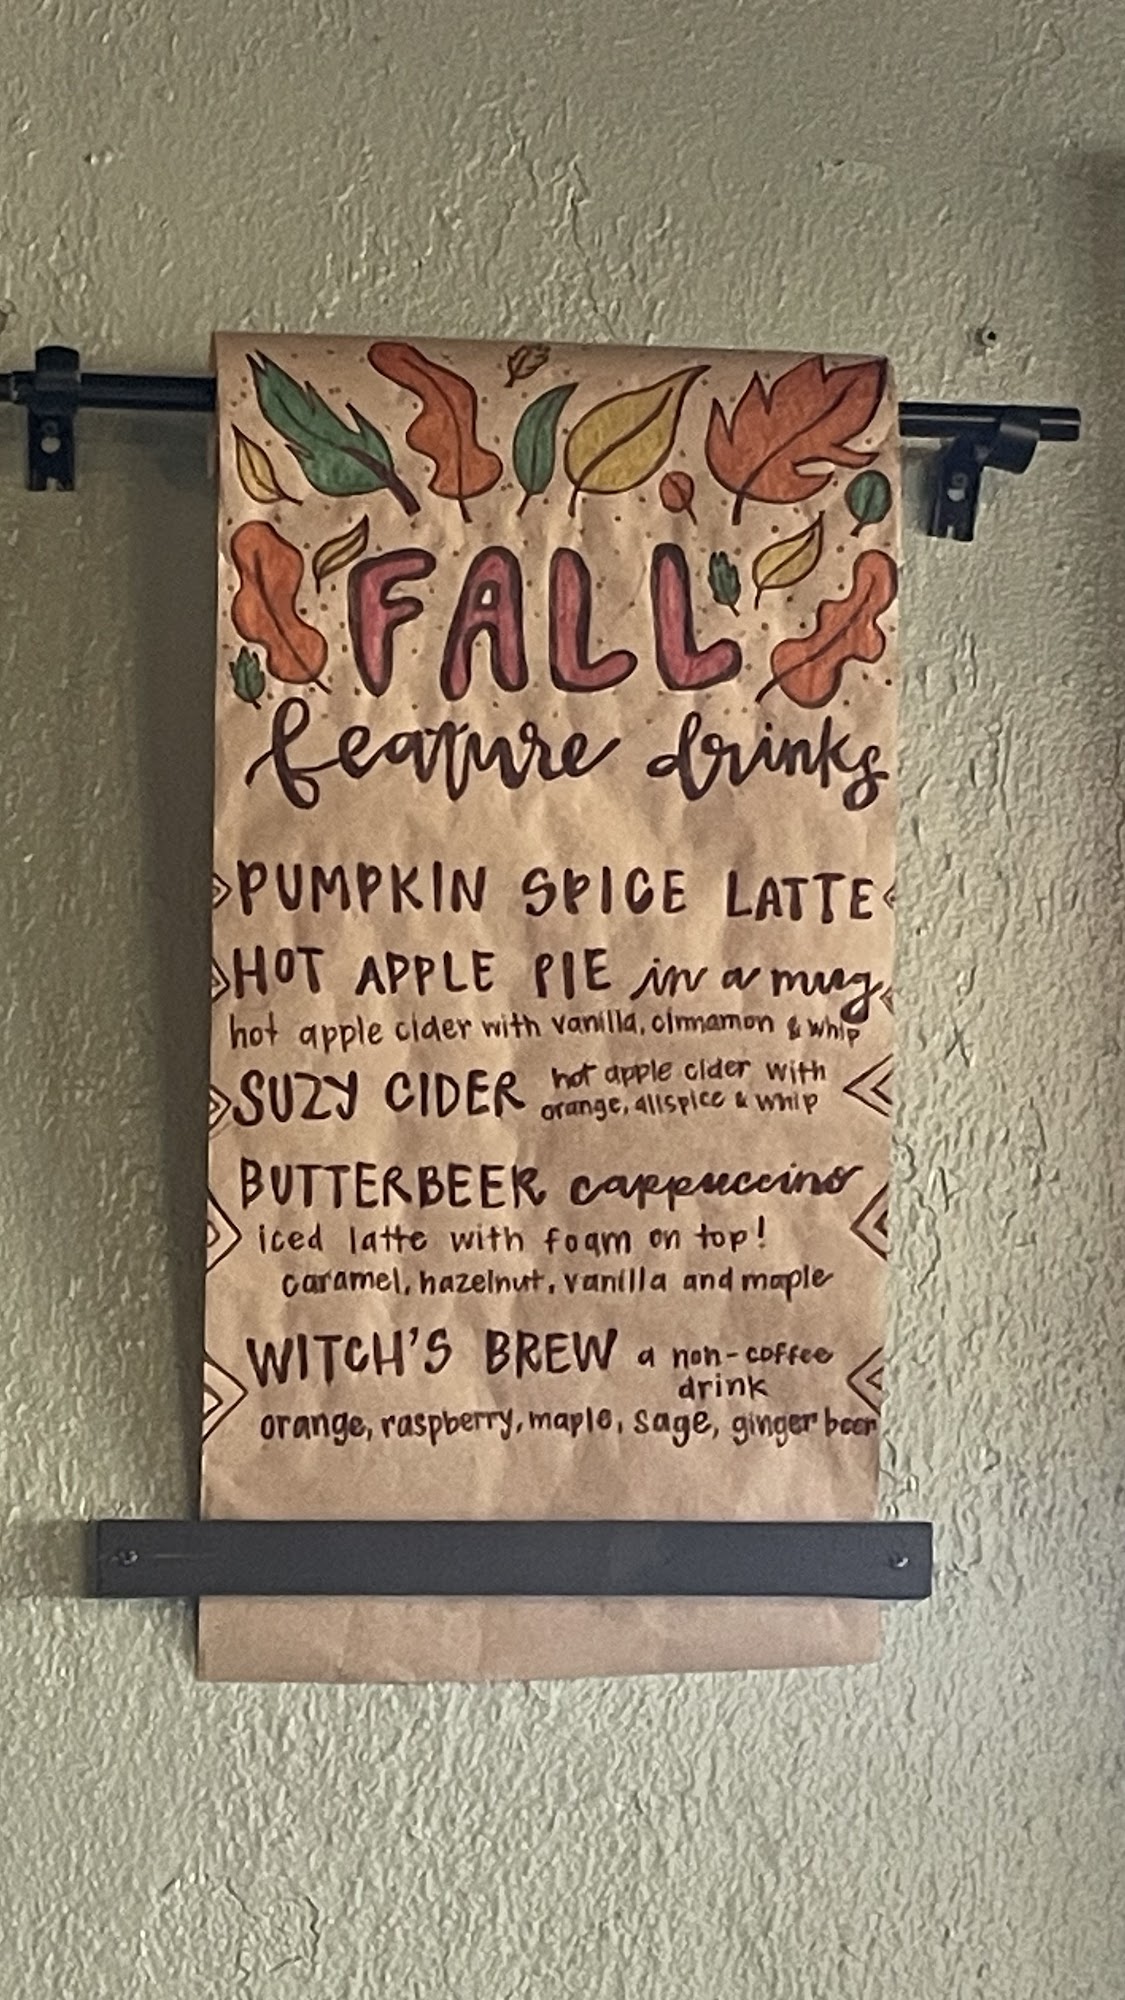 FALL
feature drinks
PUMPKIN SPICE LATTE
HOT APPLE PIE in a mug
hot apple cider with vanilla, cinnamon & whip
SUZY CIDER hot apple cider with
orange, allspice & whip
BUTTERBEER cappuccino
iced latte with foam on top!
caramel, hazelnut, vanilla and maple
WITCH'S BREW a non-coffee
drink
orange, raspberry, maple, sage, ginger beer